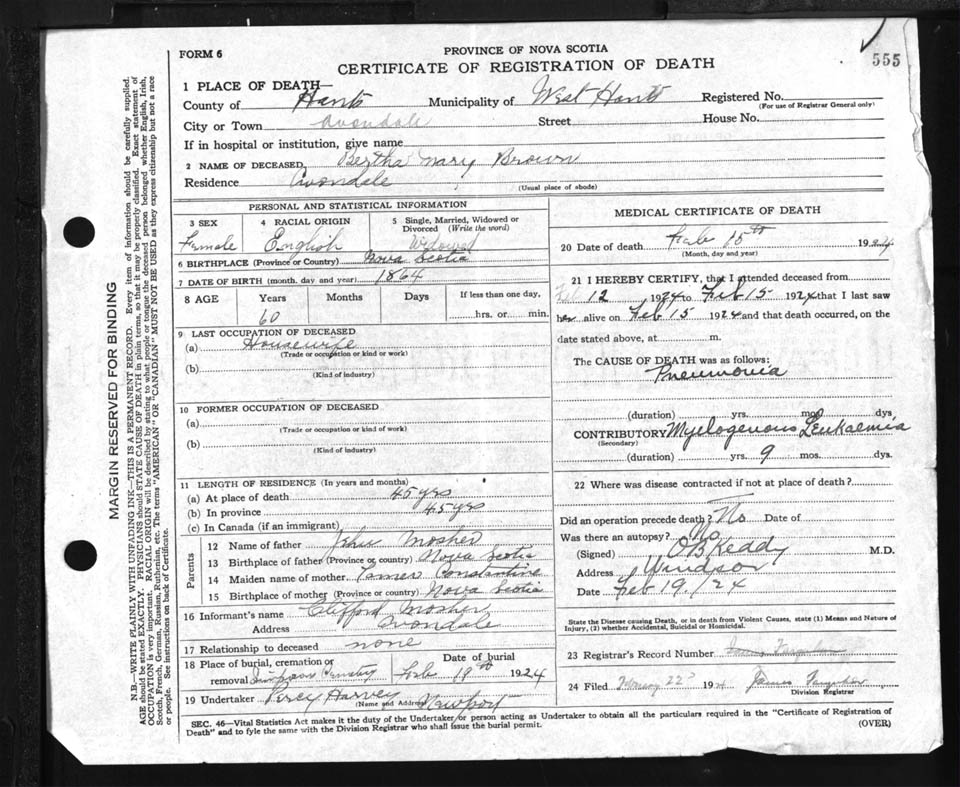 555
FORM 6
PROVINCE OF NOVA SCOTIA
CERTIFICATE OF REGISTRATION OF DEATH
1 PLACE OF DEATH—
County of Hants Municipality of West Hants Registered No.
(For use of Registrar General only)
City or Town Avondale Street House No.
If in hospital or institution, give name
2 NAME OF DECEASED, Bertha Mary Brown
Residence Avondale
(Usual place of abode)
PERSONAL AND STATISTICAL INFORMATION
3 SEX 4 RACIAL ORIGIN 5 Single, Married, Widowed or Divorced (Write the word)
Female English Widowed
6 BIRTHPLACE (Province or Country) Nova Scotia
7 DATE OF BIRTH (month, day and year) 1864
8 AGE Years Months Days If less than one day,
60 hrs. or min.
9 LAST OCCUPATION OF DECEASED
(a) Housewife
(Trade or occupation or kind or work)
(b)
(Kind of industry)
10 FORMER OCCUPATION OF DECEASED
(a)
(Trade or occupation or kind or work)
(b)
(Kind of industry)
11 LENGTH OF RESIDENCE (In years and months)
(a) At place of death 45 yrs
(b) In province 45 yrs
(c) In Canada (if an immigrant)
Parents
12 Name of father Mosher
13 Birthplace of father (Province or country) Nova Scotia
14 Maiden name of mother Constantine
15 Birthplace of mother (Province or country) Nova Scotia
16 Informant's name Clifford Mosher
Address Avondale
17 Relationship to deceased none
18 Place of burial, cremation or Date of burial
removal Feb 18th 1924
19 Undertaker Percy Harvey
(Name and Address) Newport
MEDICAL CERTIFICATE OF DEATH
20 Date of death Feb 15th 1924
(Month, day and year)
21 I HEREBY CERTIFY, that I attended deceased from
Feb 12 1924 to Feb 15 1924 that I last saw
her alive on Feb 15 1924 and that death occurred, on the
date stated above, at m.
The CAUSE OF DEATH was as follows:
Pneumonia
(duration) yrs. mos. dys.
CONTRIBUTORY Myelogenous Leukaemia
(Secondary)
(duration) yrs. 9 mos. dys.
22 Where was disease contracted if not at place of death?
Did an operation precede death? No Date of
Was there an autopsy? No
(Signed) O B Keddy M.D.
Address Windsor
Date Feb 19/24
State the Disease causing Death, or in death from Violent Causes, state (1) Means and Nature of
Injury, (2) whether Accidental, Suicidal or Homicidal.
23 Registrar's Record Number
24 Filed February 22 1924 James
Division Registrar
SEC. 46—Vital Statistics Act makes it the duty of the Undertaker or person acting as Undertaker to obtain all the particulars required in the "Certificate of Registration of
Death" and to fyle the same with the Division Registrar who shall issue the burial permit. (OVER)
MARGIN RESERVED FOR BINDING
N.B.—WRITE PLAINLY WITH UNFADING INK—THIS IS A PERMANENT RECORD. Every item of information should be carefully supplied.
AGE should be stated EXACTLY. PHYSICIANS should STATE CAUSE OF DEATH in plain terms, so that it may be properly classified. Exact statement of
OCCUPATION is very important. RACIAL ORIGIN will be described by stating to what people or tongue the deceased person belonged whether English, Irish,
Scotch, French, German, Russian, Ruthenian, etc. The terms "AMERICAN" OR "CANADIAN" MUST NOT BE USED as they express citizenship but not a race
or people. See instructions on back of Certificate.